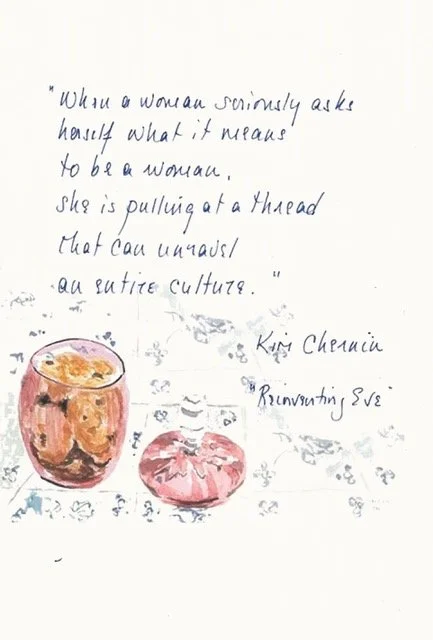 "When a woman seriously asks
herself what it means
to be a woman,
she is pulling at a thread
that can unravel
an entire culture."
Kim Chernin
"Reinventing Eve"